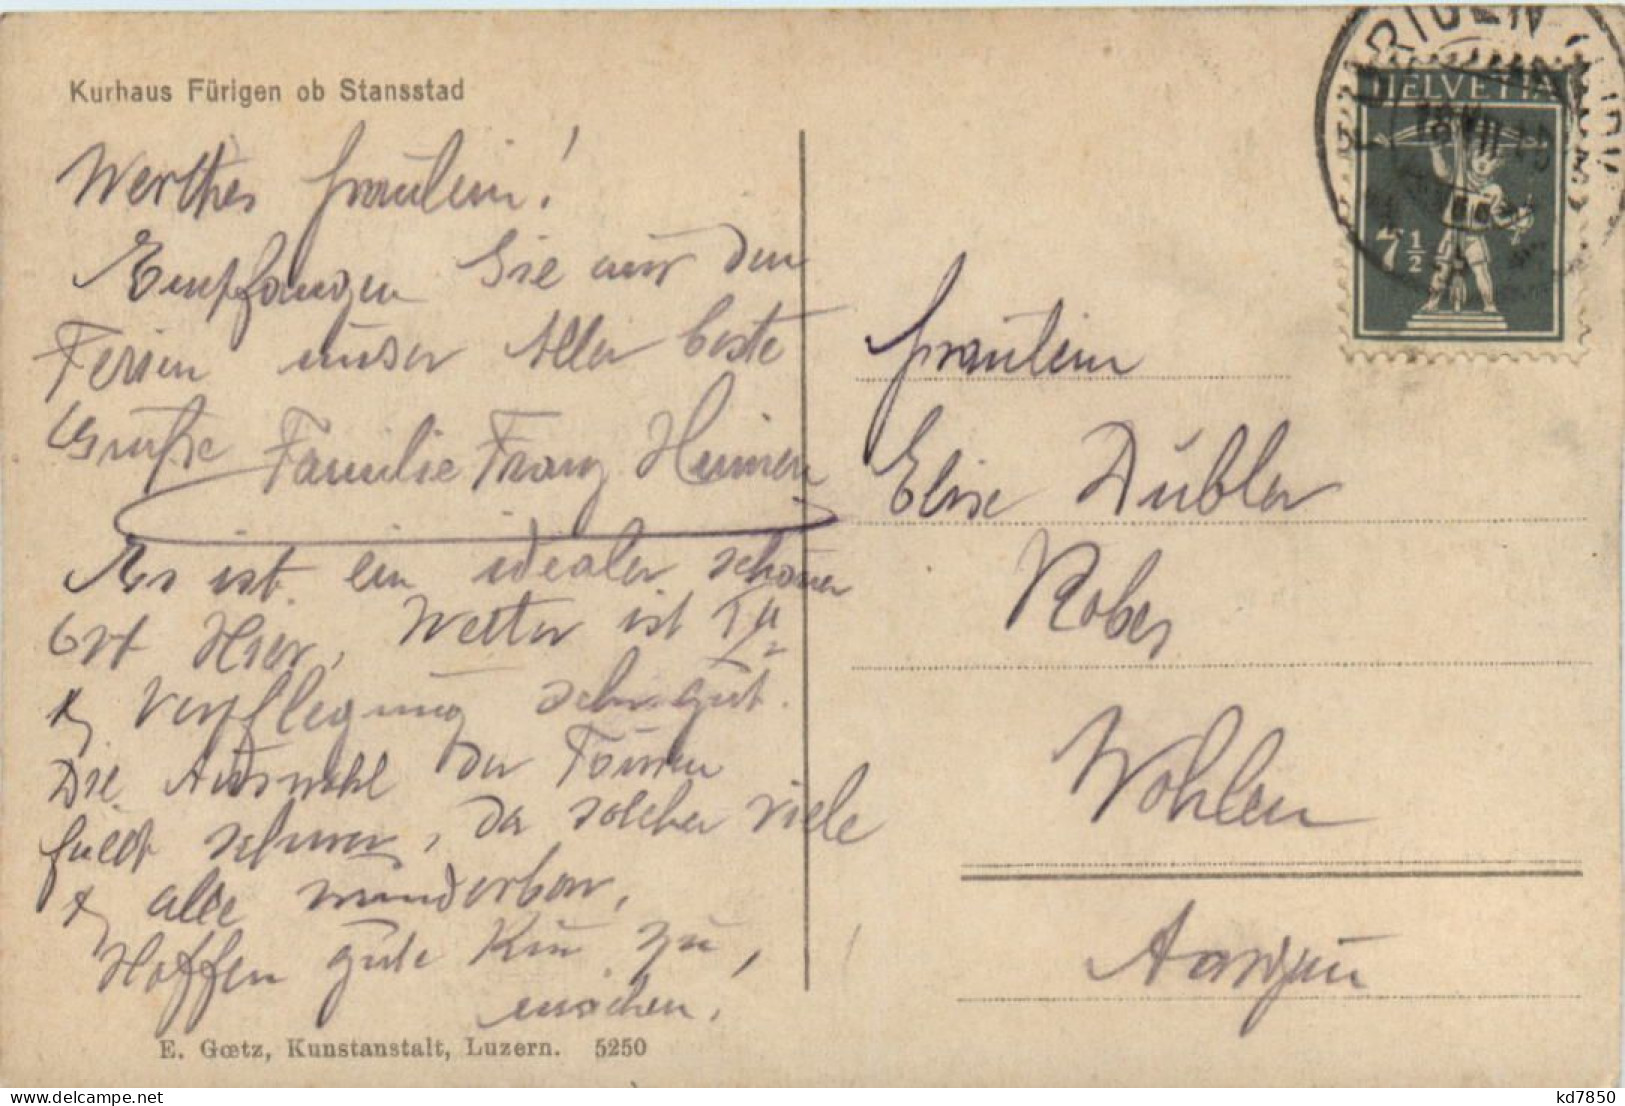 Kurhaus Fürigen ob Stansstad
Werthes Fräulein!
Empfangen Sie aus den
Ferien unser Aller beste
Grüße Familie Franz
Es ist ein idealer schöner
Ort Hier, Wetter ist Ia
& Verpflegung sehr gut.
Die Auswahl der Touren
fällt schwer, da solcher viele
& alle wunderbar,
Hoffen gute Kur zu,
machen.
E. Gœtz, Kunstanstalt, Luzern. 5250
HELVETIA
7½
Fräulein
Elise Dubler
Wohlen
Aargau
kd7850